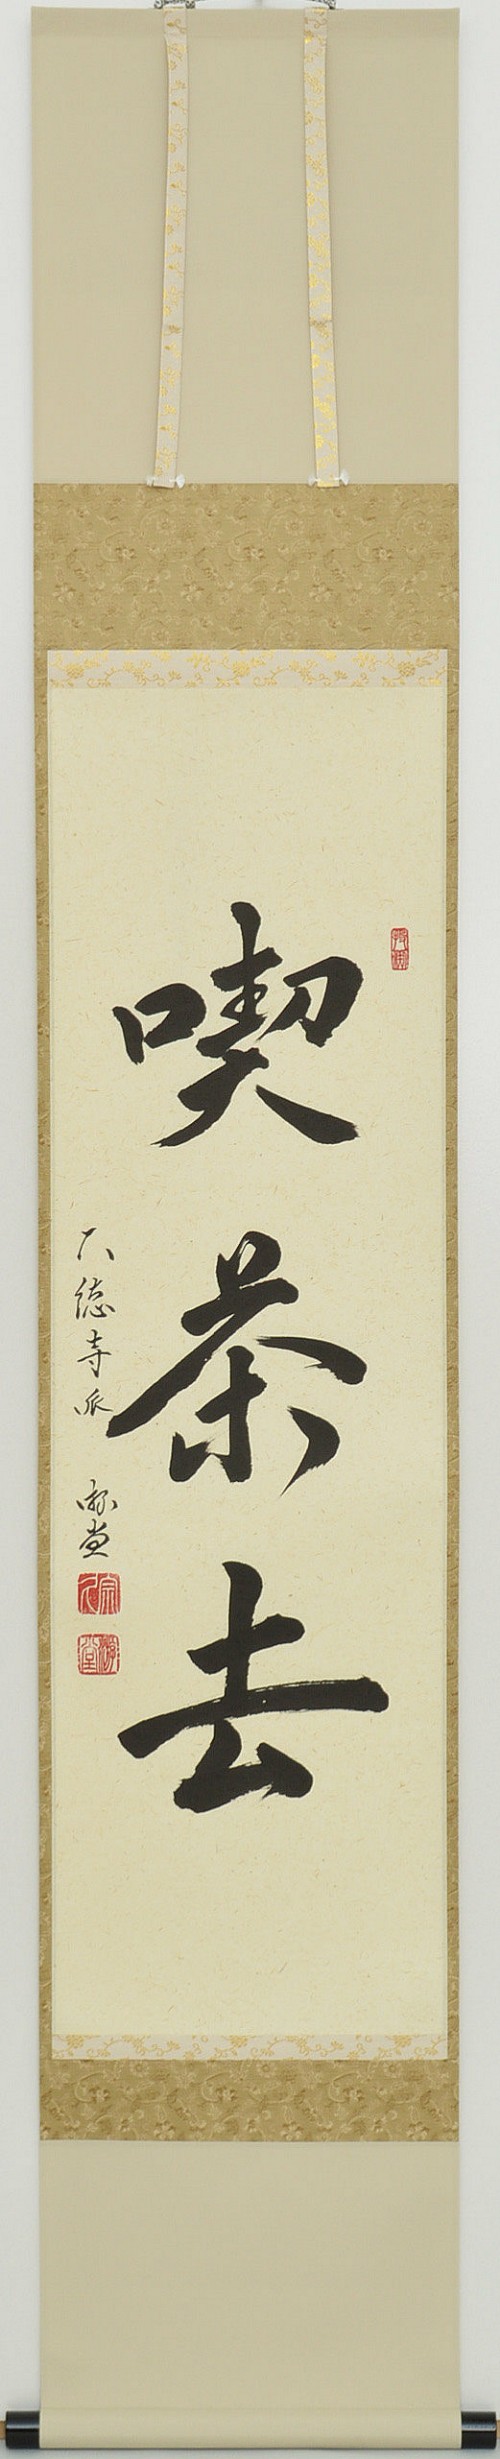 喫茶去
大徳寺派